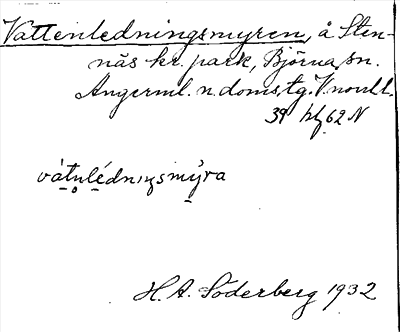 Vattenledningsmyren, å Sten-
näs kr. park, Björna sn.
Ångerml. n. doms, tg. V.norrl.l.
39 62 N
vátn̥lédnıŋsmýra
H. A. Söderberg 1932